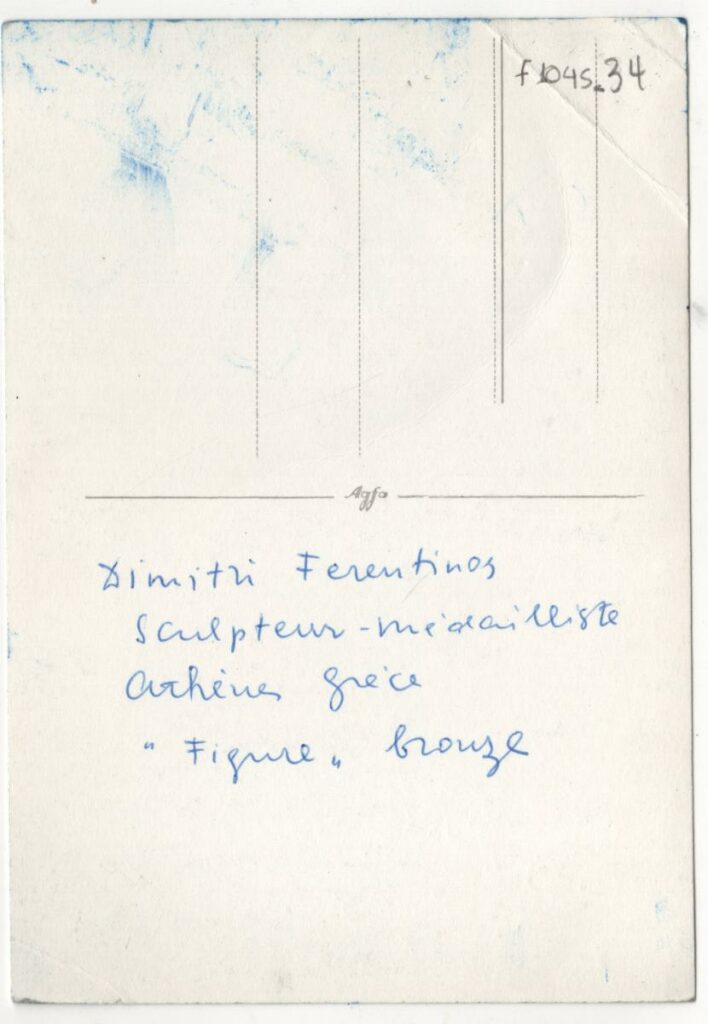 f 1045.34
Agfa
Dimitri Ferentinos
Sculpteur-médailliste
Athènes Grèce
" Figure " bronze